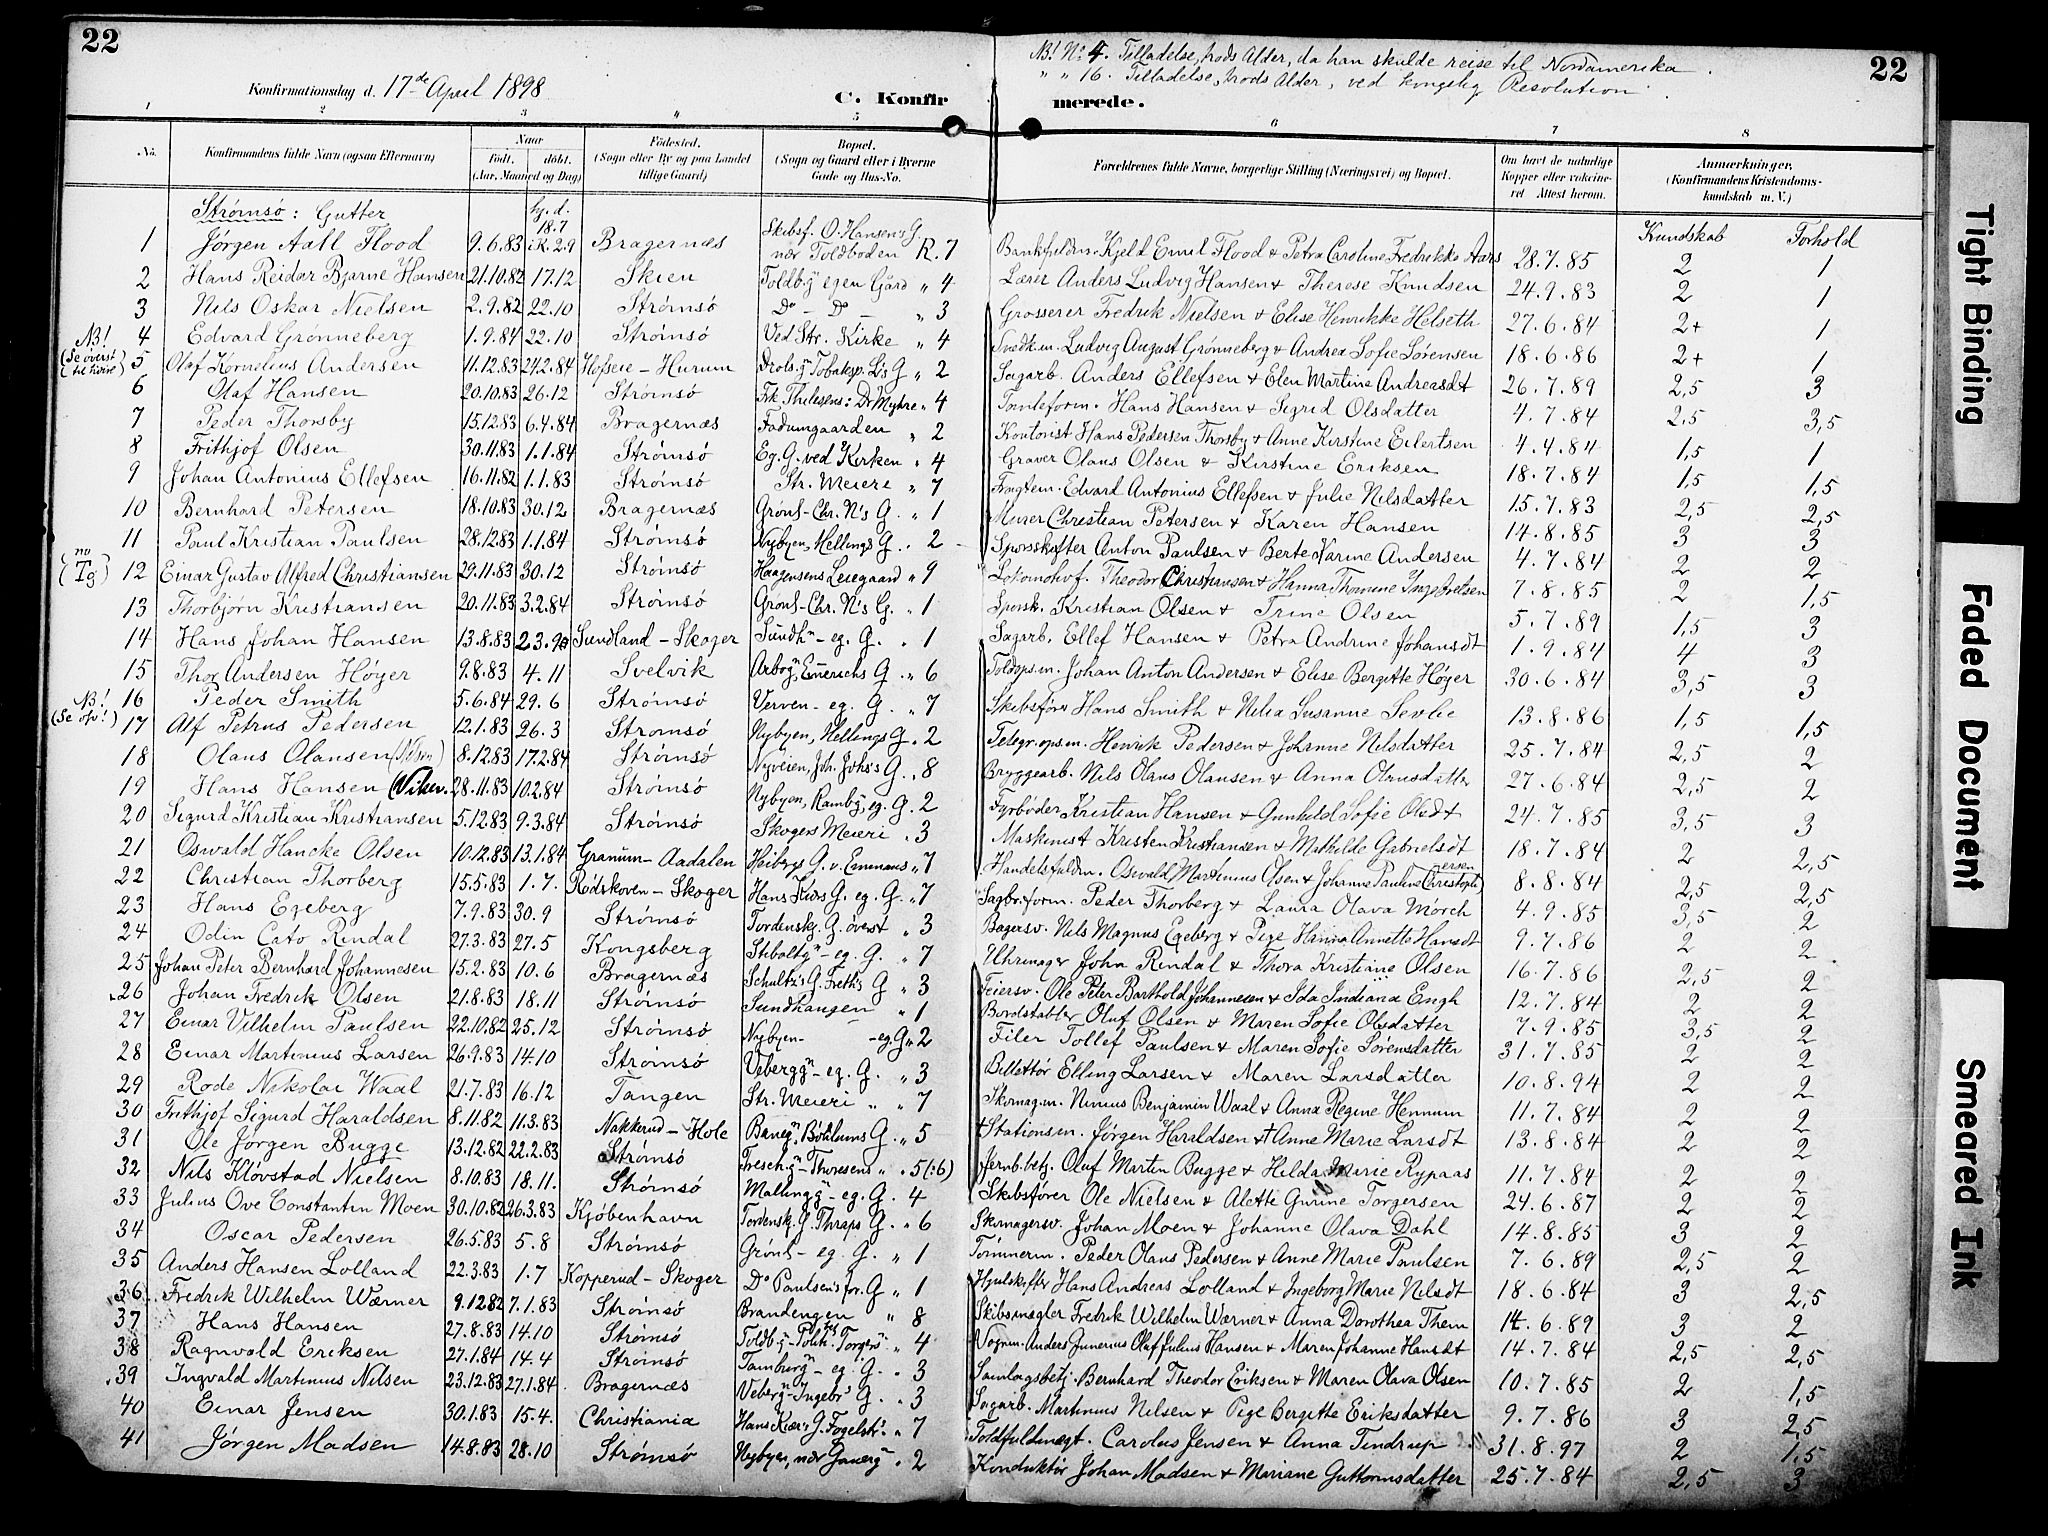 22
Konfirmationsdag d. 17de April 1898
C. Konfir
merede.
NB! No 4. Tilladelse, trods Alder, da han skulde reise til Nordamerika.
" " 16. Tilladelse, trods Alder, ved kongelig Resolution.
22
1 2 3 4 5 6 7 8
No. Konfirmandens fulde Navn (ogsaa Efternavn) Naar født. døbt. (Aar, Maaned og Dag) Fødested. (Sogn eller By og paa Landet tillige Gaard) Bopæl. (Sogn og Gaard eller i Byerne Gade og Hus-No. Forældrenes fulde Navne, borgerlige Stilling (Næringsvei) og Bopæl. Om havt de naturlige Kopper eller vakcineret Attest herom. Anmærkninger, (Konfirmandens Kristendomskundskab m. V.)
Strømsø: Gutter
Kundskab Forhold
1 Jørgen Aall Flood 9.6.83 hj.d. 18.7 i K. 2.9 Bragernæs Skibsf. O. Hansen's G. nær Toldboden R. 7 Bankfuldm. Kjeld Emil Flood & Petra Caroline Fredrikke Aars 28.7.85 2 1
2 Hans Reidar Bjarne Hansen 21.10.82 17.12 Skien Toldbg egen Gård " 4 Lærer Anders Ludvig Hansen & Therese Knudsen 24.9.83 2 1
3 Nils Oskar Nielsen 2.9.82 22.10 Strømsø Do - Do - " 3 Grosserer Fredrik Nielsen & Elise Henrikke Helseth 27.6.84 2+ 1
NB! (Se øverst til høire) 4 Edvard Grønneberg 1.9.84 22.10 Strømsø Ved Str. Kirke " 4 Snedk.m. Ludvig August Grønneberg & Andrea Sofie Sørensen 18.6.86 2+ 1
5 Olaf Kornelius Andersen 11.12.83 24.2.84 Hofseie - Hurum G " 2 Sagarb. Anders Ellefsen & Elen Martine Andreasdt 26.7.89 2,5 3
6 Olaf Hansen 20.10.83 26.12 Strømsø Frk Thelesens: Dr Myhre " 4 Hans Hansen & Sigrid Olsdatter 4.7.84 2,5 3,5
7 Peder Thorsby 15.12.83 6.4.84 Bragernæs Fadumgaarden " 2 Kontorist Hans Pedersen Thorsby & Anne Kirstine Eilertsen 4.4.84 1,5 1
8 Frithjof Olsen 30.11.83 1.1.84 Strømsø Eg. G. ved Kirken " 4 Graver Olaus Olsen & Kirstine Eriksen 18.7.84 1,5 1,5
9 Johan Antonius Ellefsen 16.11.82 1.1.83 Strømsø Str. Meieri " 7 Fragtem. Edvard Antonius Ellefsen & Julie Nilsdatter 15.7.83 2,5 2,5
10 Bernhard Petersen 18.10.83 30.12 Bragernæs Grønl- Chr. N's G. " 1 Murer Christian Petersen & Karen Hansen 14.8.85 3 3
11 Paul Kristian Paulsen 28.12.83 1.1.84 Strømsø Nybyen, Hellings G. " 2 Sporskifter Anton Paulsen & Berte Karine Andersen 4.7.84 2 2
(nu Tg) 12 Einar Gustav Alfred Christiansen 29.11.83 30.12 Strømsø Haagensens Leiegaard " 9 Lokomotivf. Theodor Christiansen & Hanna Thomine Ingebretsen 7.8.85 2 1,5
13 Thorbjørn Kristiansen 20.11.83 3.2.84 Strømsø Grønl- Chr. N's G. " 1 Sporsk. Kristian Olsen & Trine Olsen 5.7.89 1,5 3
14 Hans Johan Hansen 13.8.83 Sundland - Skoger Sundh - eg. G. " 1 Sagarb. Ellef Hansen & Petra Andrine Johansdt 1.9.84 4 3
15 Thor Andersen Høyer 9.8.83 4.11 Svelvik Arbog, Emerichs G. " 6 Toldops.m. Johan Anton Andersen & Elise Bergitte Høyer 30.6.84 3,5 3
NB! (Se ov!) 16 Peder Smith 5.6.84 29.6 Strømsø Verven - eg. G. " 7 Skibsfører Hans Smith & Nilia Susanne 13.8.86 1,5 1,5
17 Alf Petrus Pedersen 12.1.83 26.3 Strømsø Nybyen, Hellings G. 2 Telegr.ops.m. Henrik Pedersen & Johanne Nilsdatter 25.7.84 2,5 2
18 Olaus Olausen 8.12.83 17.2.84 Strømsø Nyveien, Joh. Johs's G. " 8 Bryggearb. Nils Olaus Olausen & Anna Olausdatter 27.6.84 2,5 2
19 Hans Hansen (Viker. 28.11.83 10.2.84 Strømsø Nybyen, Rambg, eg. G. 2 Fyrbøder Kristian Hansen & Gunhild Sofie Olsdt 24.7.85 3,5 3
20 Sigurd Kristian Kristiansen 5.12.83 9.3.84 Strømsø Skogers Meieri " 3 Maskinist Kristen Kristiansen & Mathilde Gabrielsdt 18.7.84 2 2,5
21 Oswald Hancke Olsen 10.12.83 13.1.84 Granum - Aadalen Heibergs G. v. Emmaus " 7 Handelsfuldm. Oswald Martinius Olsen & Johanne Pauline Christophersen 8.8.84 2,5 2,5
22 Christian Thorberg 15.5.83 1.7. Rødskoven - Skoger Hans Kiærs G. eg. G. " 7 Sagbr.form. Peder Thorberg & Laura Olava Mörch 4.9.85 3,5 2
23 Hans Egeberg 7.9.83 30.9 Strømsø Tordenskj. G. øverst " 3 Bagersv. Nils Magnus Egeberg & Pige Hanna Annette Hansdt 9.7.86 2 2
24 Odin Cato Rindal 27.3.83 27.5 Kongsberg Stiboltg - eg. G. " 7 Uhrmager John Rindal & Thora Kristiane Olsen 16.7.86 2,5 2
25 Johan Peter Bernhard Johannesen 15.2.83 10.6 Bragernæs Schultz's G. Freth's G " 3 Feiersv. Ole Peter Barthold Johannesen & Ida Indiana Engh 12.7.84 2 2
26 Johan Fredrik Olsen 21.8.83 18.11 Strømsø Sundhaugen " 1 Bordstabler Oluf Olsen & Maren Sofie Olsdatter 7.9.85 3,5 2
27 Einar Vilhelm Paulsen 22.10.82 25.12 Strømsø Nybyen - eg. G. " 2 Filer Tollef Paulsen & Maren Sofie Sørensdatter 31.7.85 2 2
28 Einar Martinius Larsen 26.9.83 14.10 Strømsø Vebergg - eg. G. " 3 Billettør Elling Larsen & Maren Larsdatter 10.8.94 2 2
29 Rode Nikolai Waal 21.7.83 16.12 Tangen Str. Meieri " " 7 Skomag.m. Ninius Benjamin Waal & Anna Regine Hennum 11.7.84 2 2
30 Frithjof Sigurd Haraldsen 8.11.82 11.3.83 Nakkerud - Hole Baneg, Bøhlums G. " 5 †Stationsm. Jørgen Haraldsen & †Anne Marie Larsdt 13.8.84 2 2
31 Ole Jørgen Bugge 13.12.82 22.2.83 Strømsø Treschg - Thoresens " " 5(:6) Jernb.betj. Oluf Martin Bugge & Hilda Marie Rypaas 11.7.84 2 2
32 Nils Kløvstad Nielsen 8.10.83 18.11. Strømsø Mallingg - eg. G. 4 Skibsfører Ole Nielsen & Alette Gurine Torgersen 24.6.87 2 2
33 Julius Ove Constantin Moen 30.10.82 26.3.83 Kjøbenhavn Tordensk. G. Thraps G. " 6 Skomagersv. Johan Moen & Johanne Olava Dahl 14.8.85 3 2
34 Oscar Pedersen 26.5.83 5.8 Strømsø Grønl - eg. G. " 1 Tømmerm. Peder Olaus Pedersen & Anne Marie Paulsen 7.6.89 2,5 2
35 Anders Hansen Lolland 22.3.83 1.7 Kopperud - Skoger Do Paulsen's for. G " 1 Hjulskifter Hans Andreas Lolland & Ingeborg Marie Nilsdt 18.6.84 3 2,5
36 Fredrik Wilhelm Wærner 9.12.82 7.1.83 Strømsø Brandengen " 8 Skibsmægler Fredrik Wilhelm Wærner & Anna Dorothea Them 14.6.89 3 2
37 Hans Hansen 27.8.83 14.10 Strømsø Toldbg - Politb. Torgers " 4 Vognm. Anders Junerius Olaf Julius Hansen & Maren Johanne Hansdt 14.7.84 2,5 2,5
38 Ragnvald Eriksen 27.1.84 14.4 Strømsø Tamburg - eg. G. " 3 Samlagsbetj. Bernhard Theodor Eriksen & Maren Olava Olsen 10.7.85 2 1,5
39 Ingvald Martinius Nilsen 23.12.83 27.1.84 Bragernæs Veberg - Ingebr's G. " 3 Sagarb. Martinius Nilsen & Pige Bergitte Eriksdatter 9.7.86 3 2,5
40 Einar Jensen 30.1.83 15.4. Christiania Hans Kiær's G. Fogelstr. " 7 Toldfuldmægt. Carolus Jensen & Anna Tindrup 31.8.97 2 1,5
41 Jørgen Madsen 14.8.83 28.10 Strømsø Nybyen, nær " 2 Konduktør Johan Madsen & Mariane Guttormsdatter 25.7.84 2,5 3
Tight Binding
Faded Document
Smeared Ink